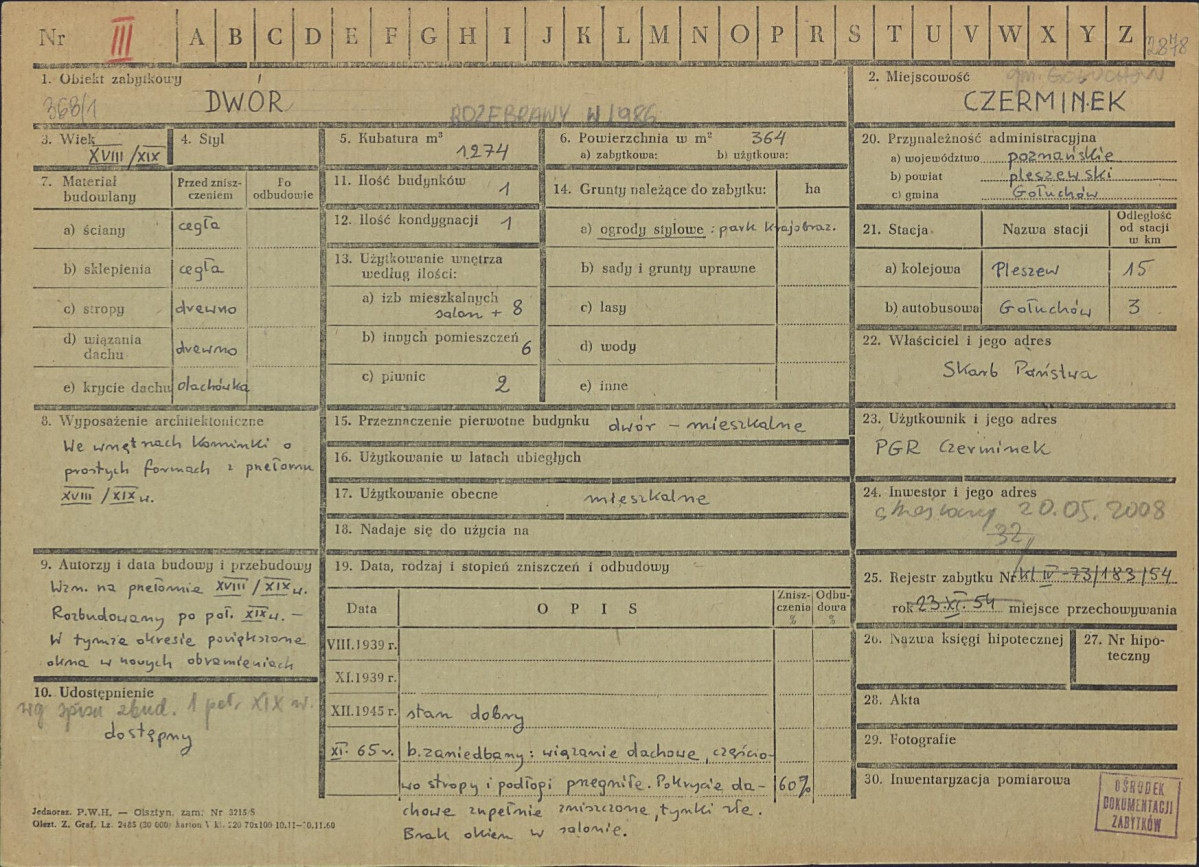 Nr III A B C D E F G H I J K L M N O P R S T U V W X Y Z 2878
1. Obiekt zabytkowy
368/1
DWÓR
ROZEBRANY W 1986
2. Miejscowość
gm. GOŁUCHÓW
CZERMINEK
3. Wiek
XVIII/XIX
4. Styl
5. Kubatura m³
1274
6. Powierzchnia w m² 364
a) zabytkowa: b) użytkowa:
7. Materiał budowlany
Przed zniszczeniem
Po odbudowie
a) ściany cegła
b) sklepienia cegła
c) stropy drewno
d) wiązania dachu drewno
e) krycie dachu dachówka
8. Wyposażenie architektoniczne
We wnętrzach kominki o
prostych formach z przełomu
XVIII/XIX w.
9. Autorzy i data budowy i przebudowy
Wzn. na przełomie XVIII/XIX w.
Rozbudowany po poł. XIX w. –
W tymże okresie powiększone
okna w nowych obramieniach
10. Udostępnienie
wg spisu zbud. 1 poł. XIX w.
dostępny
11. Ilość budynków 1
12. Ilość kondygnacji 1
13. Użytkowanie wnętrza
według ilości:
a) izb mieszkalnych
salon + 8
b) innych pomieszczeń 6
c) piwnic 2
14. Grunty należące do zabytku: ha
a) ogrody stylowe : park krajobraz.
b) sady i grunty uprawne
c) lasy
d) wody
e) inne
15. Przeznaczenie pierwotne budynku dwór – mieszkalne
16. Użytkowanie w latach ubiegłych
17. Użytkowanie obecne mieszkalne
18. Nadaje się do użycia na
19. Data, rodzaj i stopień zniszczeń i odbudowy
Data
OPIS
Zniszczenia %
Odbudowa %
VIII.1939 r.
XI.1939 r.
XII.1945 r. stan dobry
XI. 65 r. b. zaniedbany: wiązanie dachowe, częścio-
wo stropy i podłogi przegniłe. Pokrycie da- 60%
chowe zupełnie zniszczone, tynki złe.
Brak okien w salonie.
20. Przynależność administracyjna
a) województwo poznańskie
b) powiat pleszewski
c) gmina Gołuchów
21. Stacja
Nazwa stacji
Odległość od stacji w km
a) kolejowa Pleszew 15
b) autobusowa Gołuchów 3
22. Właściciel i jego adres
Skarb Państwa
23. Użytkownik i jego adres
PGR Czerminek
24. Inwestor i jego adres
skreślony 20.05.2008
32
25. Rejestr zabytku Nr kl IV-73/183/54
rok 23.XI.54 miejsce przechowywania
26. Nazwa księgi hipotecznej
27. Nr hipoteczny
28. Akta
29. Fotografie
30. Inwentaryzacja pomiarowa
OŚRODEK
DOKUMENTACJI
ZABYTKÓW
Jednoraz. P.W.H. — Olsztyn, zam. Nr 3215/S
Olszt. Z. Graf. Lz. 2485 (30 000) karton V kl. 220 70x100 10.11—30.11.60